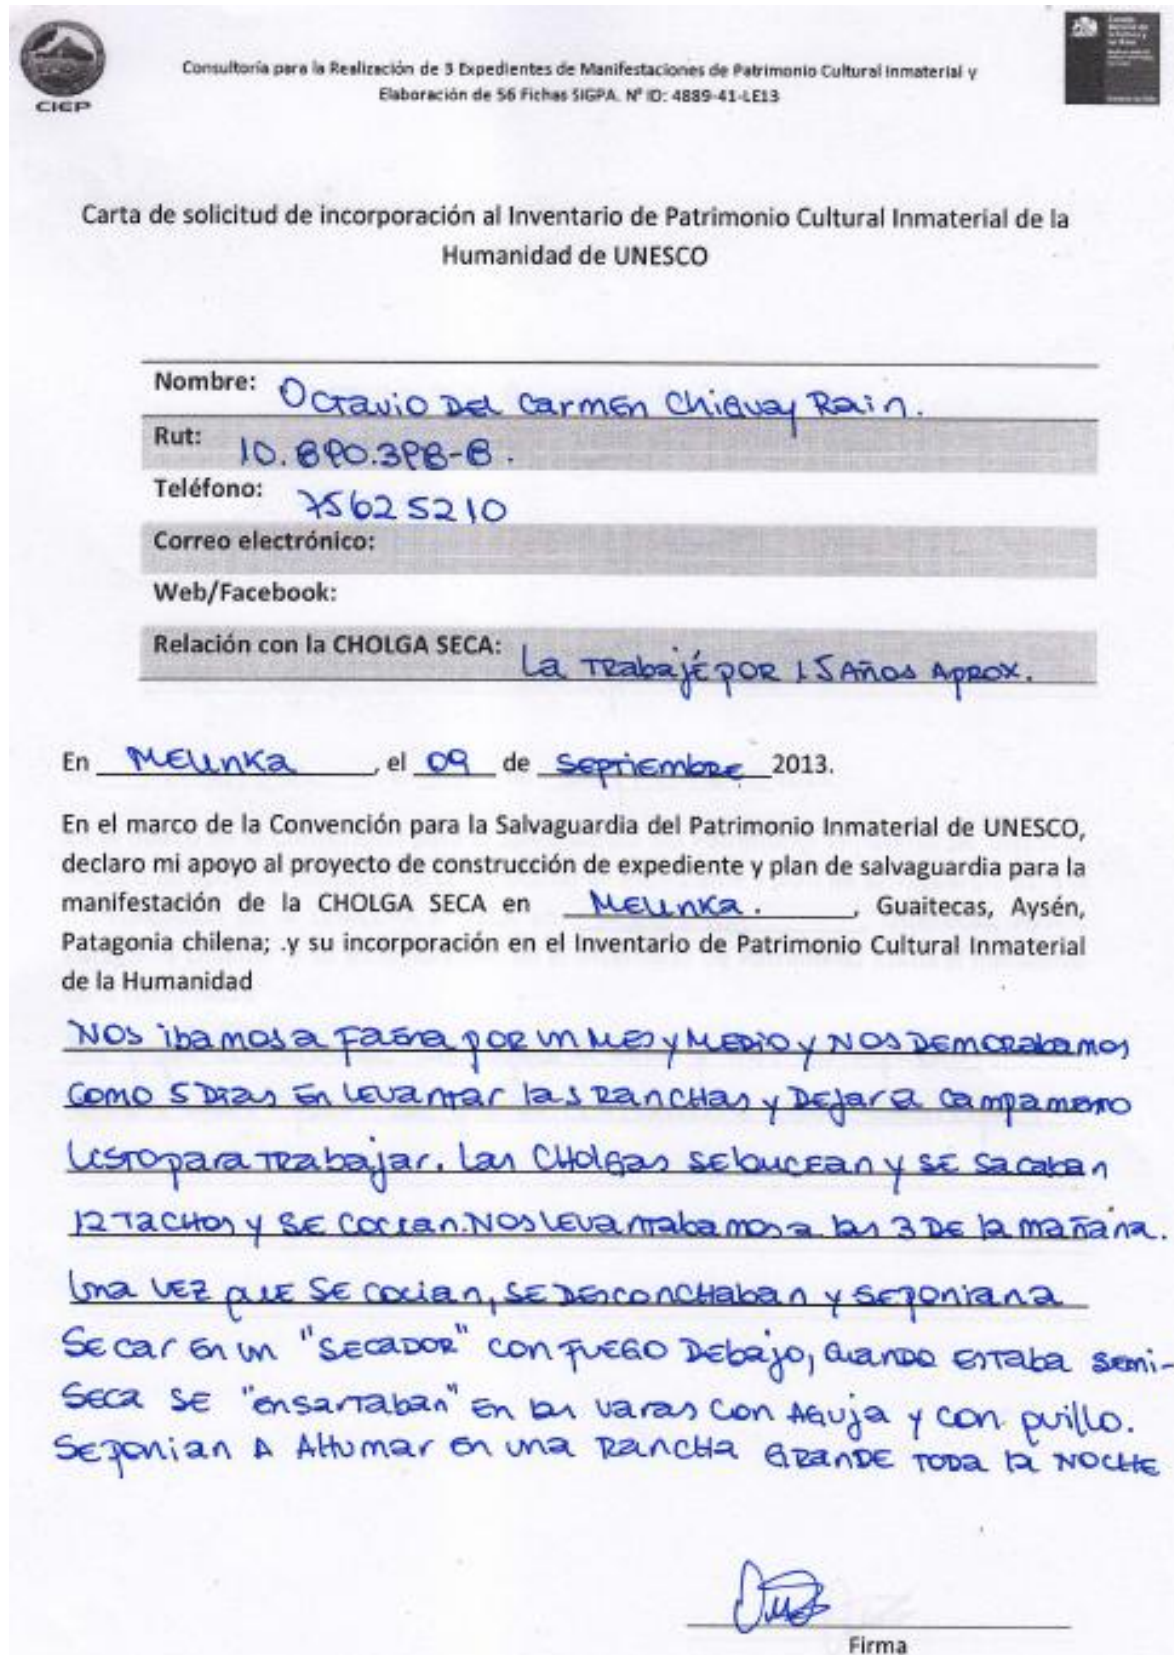 CIEP
Consultoría para la Realización de 3 Expedientes de Manifestaciones de Patrimonio Cultural Inmaterial y
Elaboración de 56 Fichas SIGPA. N° ID: 4889-41-LE13
Carta de solicitud de incorporación al Inventario de Patrimonio Cultural Inmaterial de la
Humanidad de UNESCO
Nombre: Octavio Del Carmen Chiguay Rain.
Rut: 10.890.398-8.
Teléfono: 75625210
Correo electrónico:
Web/Facebook:
Relación con la CHOLGA SECA: La Trabajé por 15 Años Aprox.
En Melinka, el 09 de Septiembre 2013.
En el marco de la Convención para la Salvaguardia del Patrimonio Inmaterial de UNESCO,
declaro mi apoyo al proyecto de construcción de expediente y plan de salvaguardia para la
manifestación de la CHOLGA SECA en Melinka. , Guaitecas, Aysén,
Patagonia chilena; .y su incorporación en el Inventario de Patrimonio Cultural Inmaterial
de la Humanidad
Nos ibamos a faena por un mes y medio y nos demorabamos
como 5 dias en levantar las ranchas y dejar el campamento
listo para trabajar. Las cholgas se bucean y se sacaban
12 tachos y se cocian. Nos levantabamos a las 3 de la mañana.
Una vez que se cocian, se desconchaban y se ponian a
secar en un "secador" con fuego debajo, cuando estaba semi-
seca se "ensartaban" en las varas con aguja y con quillo.
Se ponian a ahumar en una rancha grande toda la noche
Firma